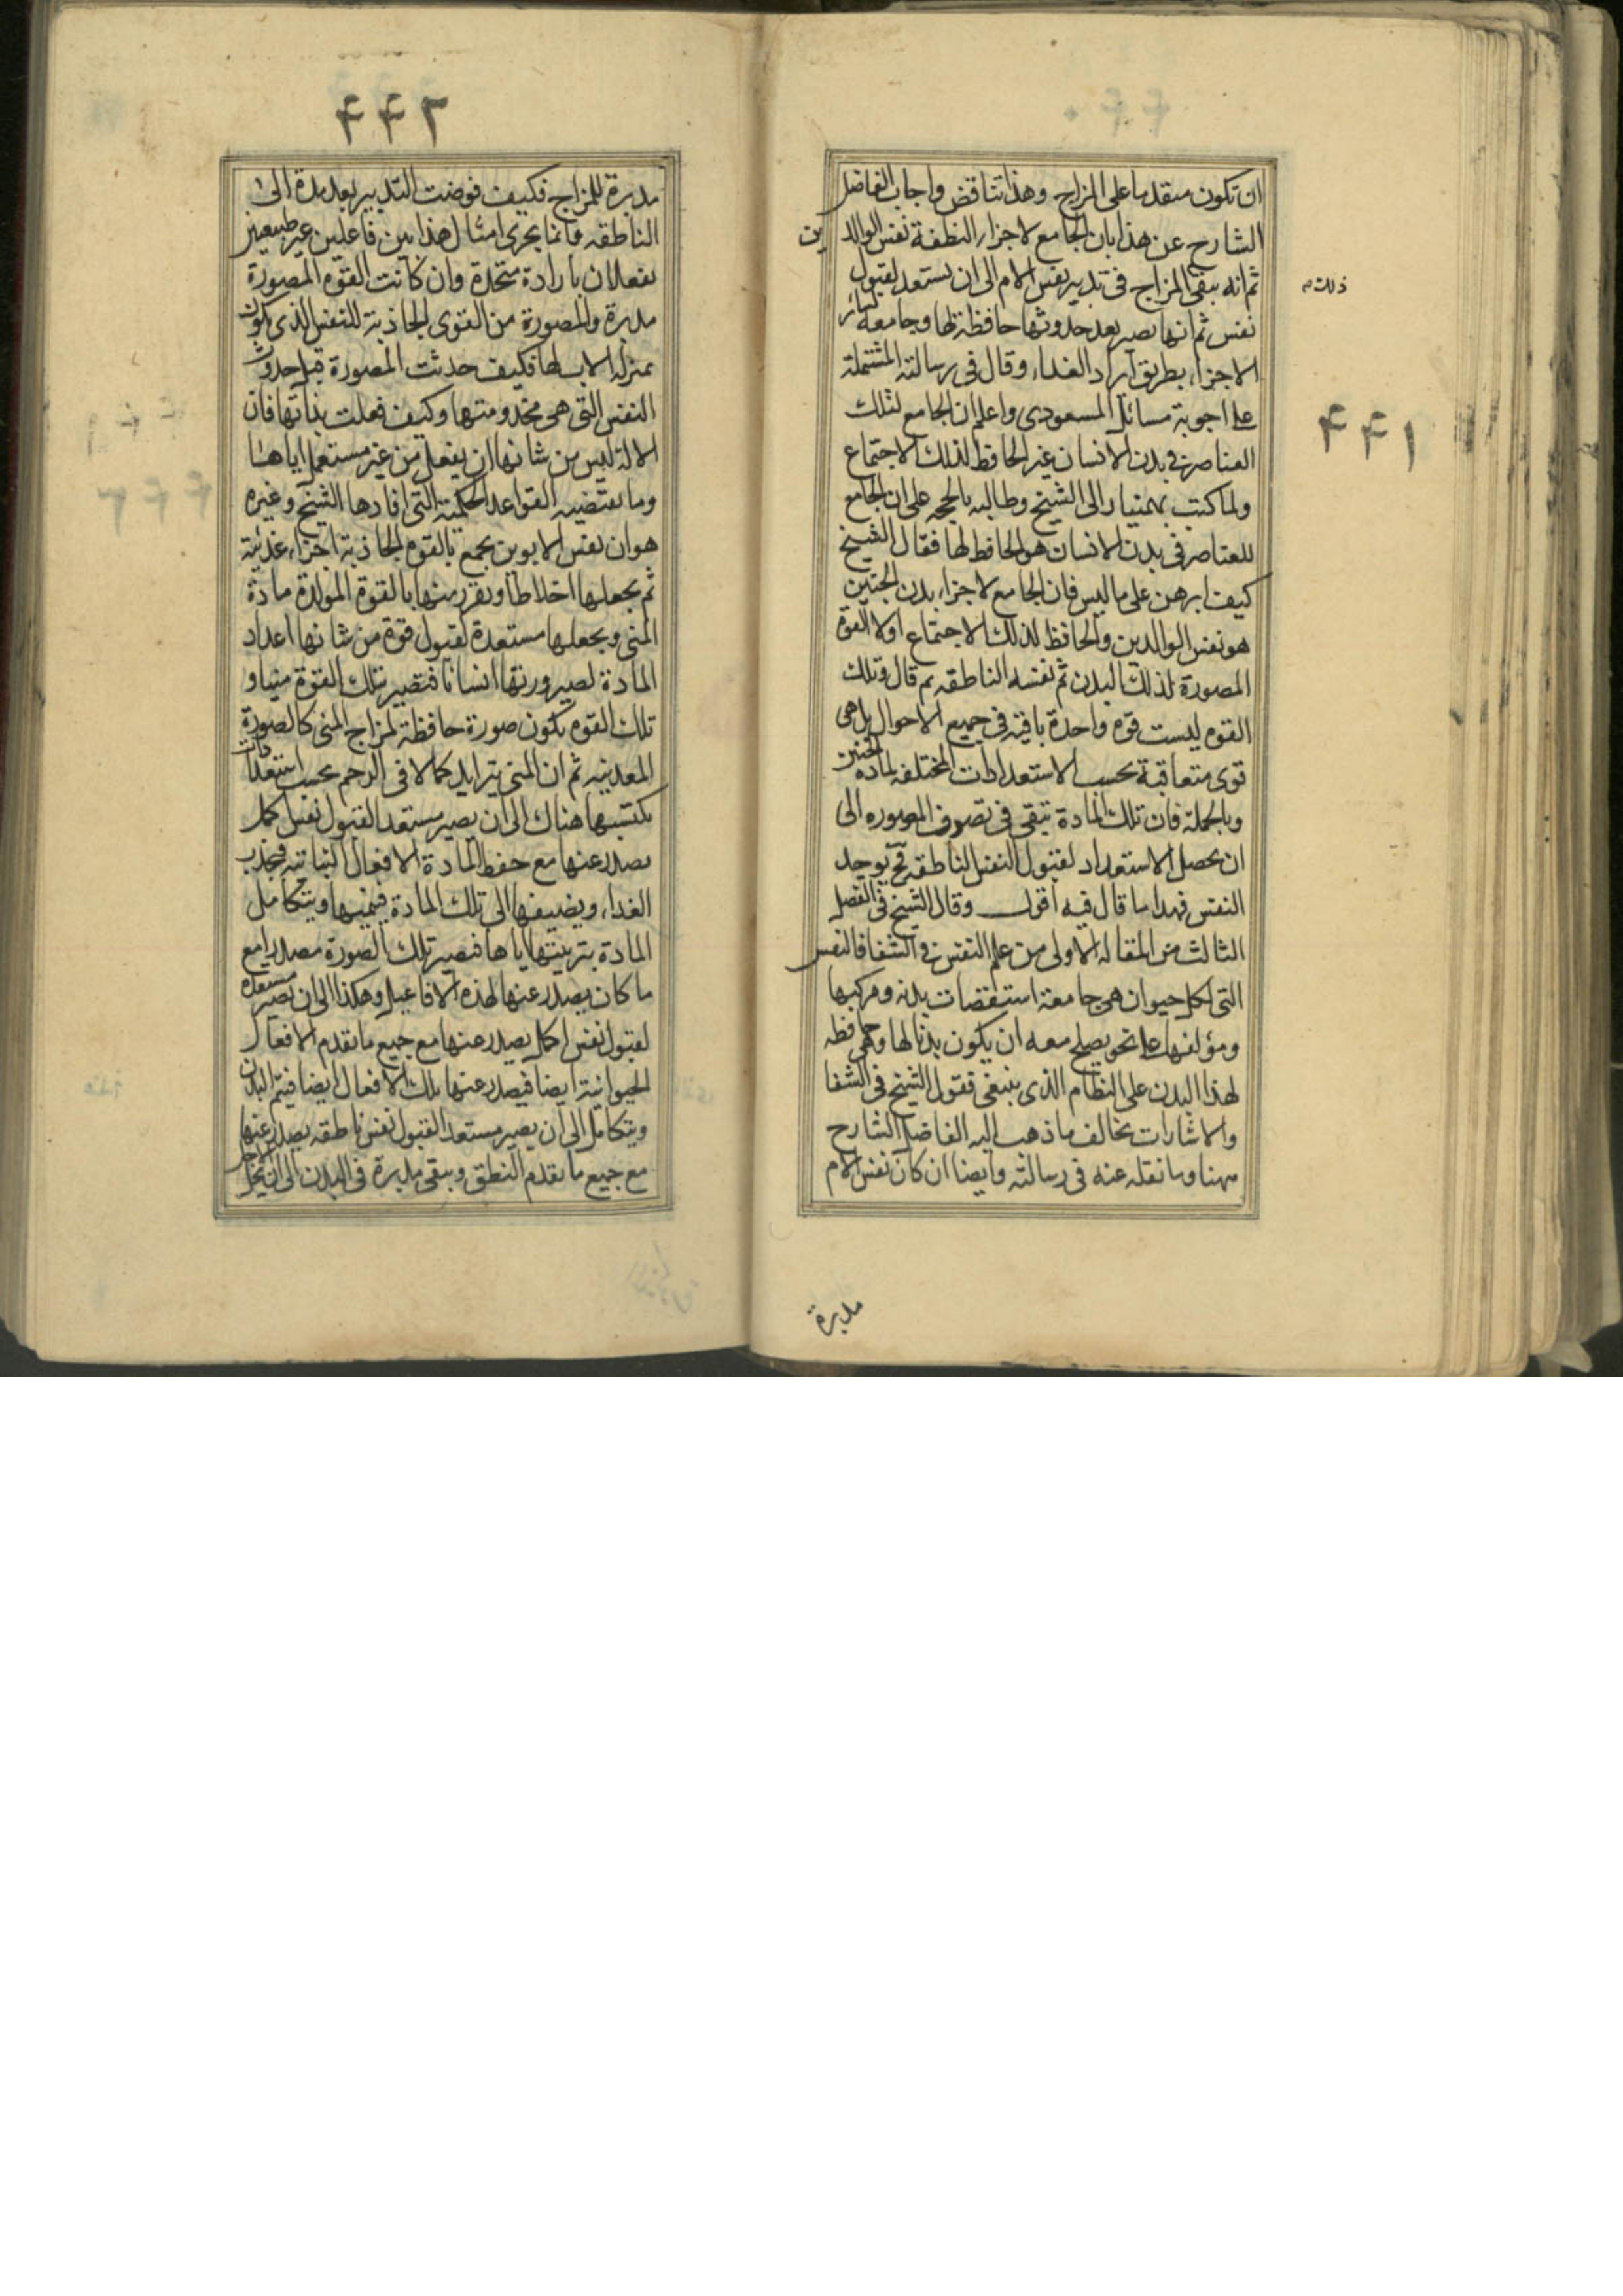 ۴۴۱
ان تكون متقدما على المزاج وهذا تناقض واجاب الفاضل
الشارح عن هذا بان الجامع لاجزاء النطفة نفس الوالدين
ثم انه يبقى المزاج فى تدبير نفس الام الى ان يستعد لقبول
ذلك
نفس ثم انها يصير بعد حدوثها حافظة لها وجامعة لساير
الاجزاء بطريق ايراد الغذاء وقال فى رسالته المشتملة
على اجوبة مسائل المسعودى واعلم ان الجامع لتلك
العناصر فى بدن الانسان غير الحافظ لذلك الاجتماع
ولما كتب بهمنيار الى الشيخ وطالبه بالحجة على ان الجامع
للعناصر فى بدن الانسان هو الحافظ لها فقال الشيخ
كيف ابرهن على ما ليس فان الجامع لاجزاء بدن الجنين
هو نفس الوالدين والحافظ لذلك الاجتماع اولا القوة
المصورة لذلك البدن ثم نفسه الناطقه ثم قال وتلك
القوه ليست قوه واحدة باقية فى جميع الاحوال بل هى
قوى متعاقبة بحسب الاستعدادات المختلفه لماده الجنين
وبالجملة فان تلك المادة تبقى فى تصرف المصوره الى
ان يحصل الاستعداد لقبول النفس الناطقه فح يوجد
النفس فهذا ما قال فيه اقول وقال الشيخ فى الفصل
الثالث من المقاله الاولى من علم النفس فى الشفا فالنفس
التى لكل حيوان هى جامعة استقصات بدنه ومركبها
ومؤلفها على نحو يصلح معه ان يكون بدنا لها وهى حافظه
لهذا البدن على النظام الذى ينبغى فقول الشيخ فى الشفا
والاشارات يخالف ما ذهب اليه الفاضل الشارح
ههنا وما نقله عنه فى رسالته وايضا ان كان نفس الام
مدبرة
۴۴۲
مدبرة للمزاج فكيف فوضت التدبير بعد مدة الى
الناطقه وانما يجرى امثال هذا بين فاعلين غير طبيعيين
يفعلان بارادة متجددة وان كانت القوه المصورة
مدبرة والمصورة من القوى الجاذبة للنفس الذى يكون
بمنزلة الالات لها فكيف حدثت المصورة قبل حدوث
النفس التى هى مخدومتها وكيف فعلت بذاتها فان
الالة ليس من شانها ان يفعل من غير مستعمل اياها
وما يقتضيه القواعد الحكمية التى افادها الشيخ وغيره
هو ان نفس الابوين يجمع بالقوه الجاذبة اجزاء غذئية
ثم يجعلها اخلاطا ويفرز منها بالقوة المولدة مادة
المنى ويجعلها مستعدة لقبول قوة من شانها اعداد
المادة لصيرورتها انسانا فتصير بتلك القوة منيا و
تلك القوه يكون صورة حافظة لمزاج المنى كالصورة
المعدنيه ثم ان المنى يتزايد كمالا فى الرحم بحسب استعدادات
يكتسبها هناك الى ان يصير مستعدا لقبول نفس اكمل
يصدر عنها مع حفظ المادة الافعال النباتيه فيجذب
الغذاء ويضيفها الى تلك المادة فينميها ويتكامل
المادة بتربيتها اياها فتصير تلك الصورة مصدرا مع
ما كان يصدر عنها لهذه الافاعيل وهكذا الى ان يصير مستعدة
لقبول نفس اكمل يصدر عنها مع جميع ما تقدم الافعال
الحيوانية ايضا فيصدر عنها تلك الافعال ايضا فيتم البدن
ويتكامل الى ان يصير مستعدا لقبول نفس ناطقه يصدر عنها
مع جميع ما تقدم النطق ويبقى مدبرة فى البدن الى ان يحل الاجل